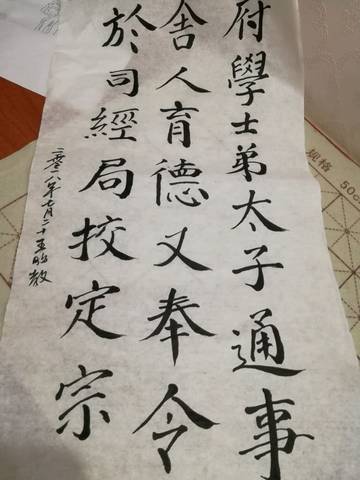 府學士弟太子通事
舍人育德又奉令
於司經局挍定宗
二零一八年七月二十五
规格 50c